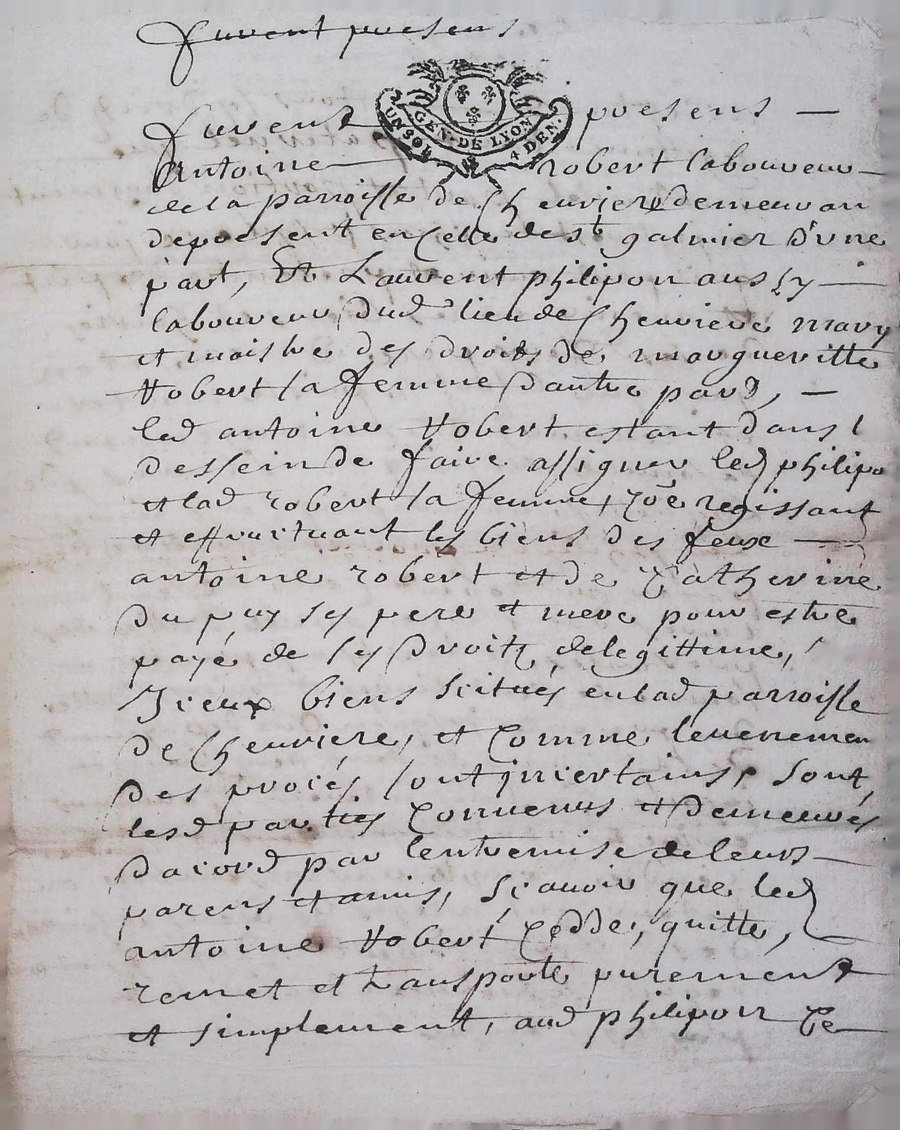 furent presens
GEN. DE LYON
UN SOL 4 DEN.
furent presens
Antoine robert laboureur
de la parroisse de Cheuriere demeuran
depresent en Celle de st galmier d'une
part, Et Laurent philipon aussy
laboureur dud. lieu de Cheuriere mary
et maistre des droits de margueritte
Robert sa femme dautre part,
led antoine Robert estant dans l
dessein de faire assigner led philipo
et lad robert sa femme, Coe regissant
et effruituant les biens des feux
antoine robert et de Catherine
du puy ses pere et mere pour estre
payé de ses Droitz de legittime,
Iceux biens scitués en lad parroisse
de Cheuriere, et Comme leuenemen
des procés sont incertains, sont
lesd parties Conuenus et Demeurés
Dacord par lentremise de leurs
parens et amis, scauoir que led
antoine Robert Cedde, quitte,
remet et transporte purement
et simplement, aud philipon Ce